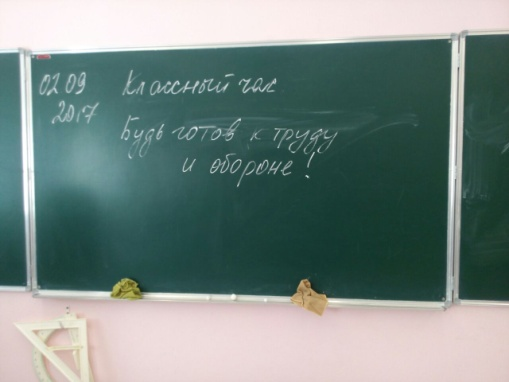 02 09 Классный час
2017
Будь готов к труду
и обороне!